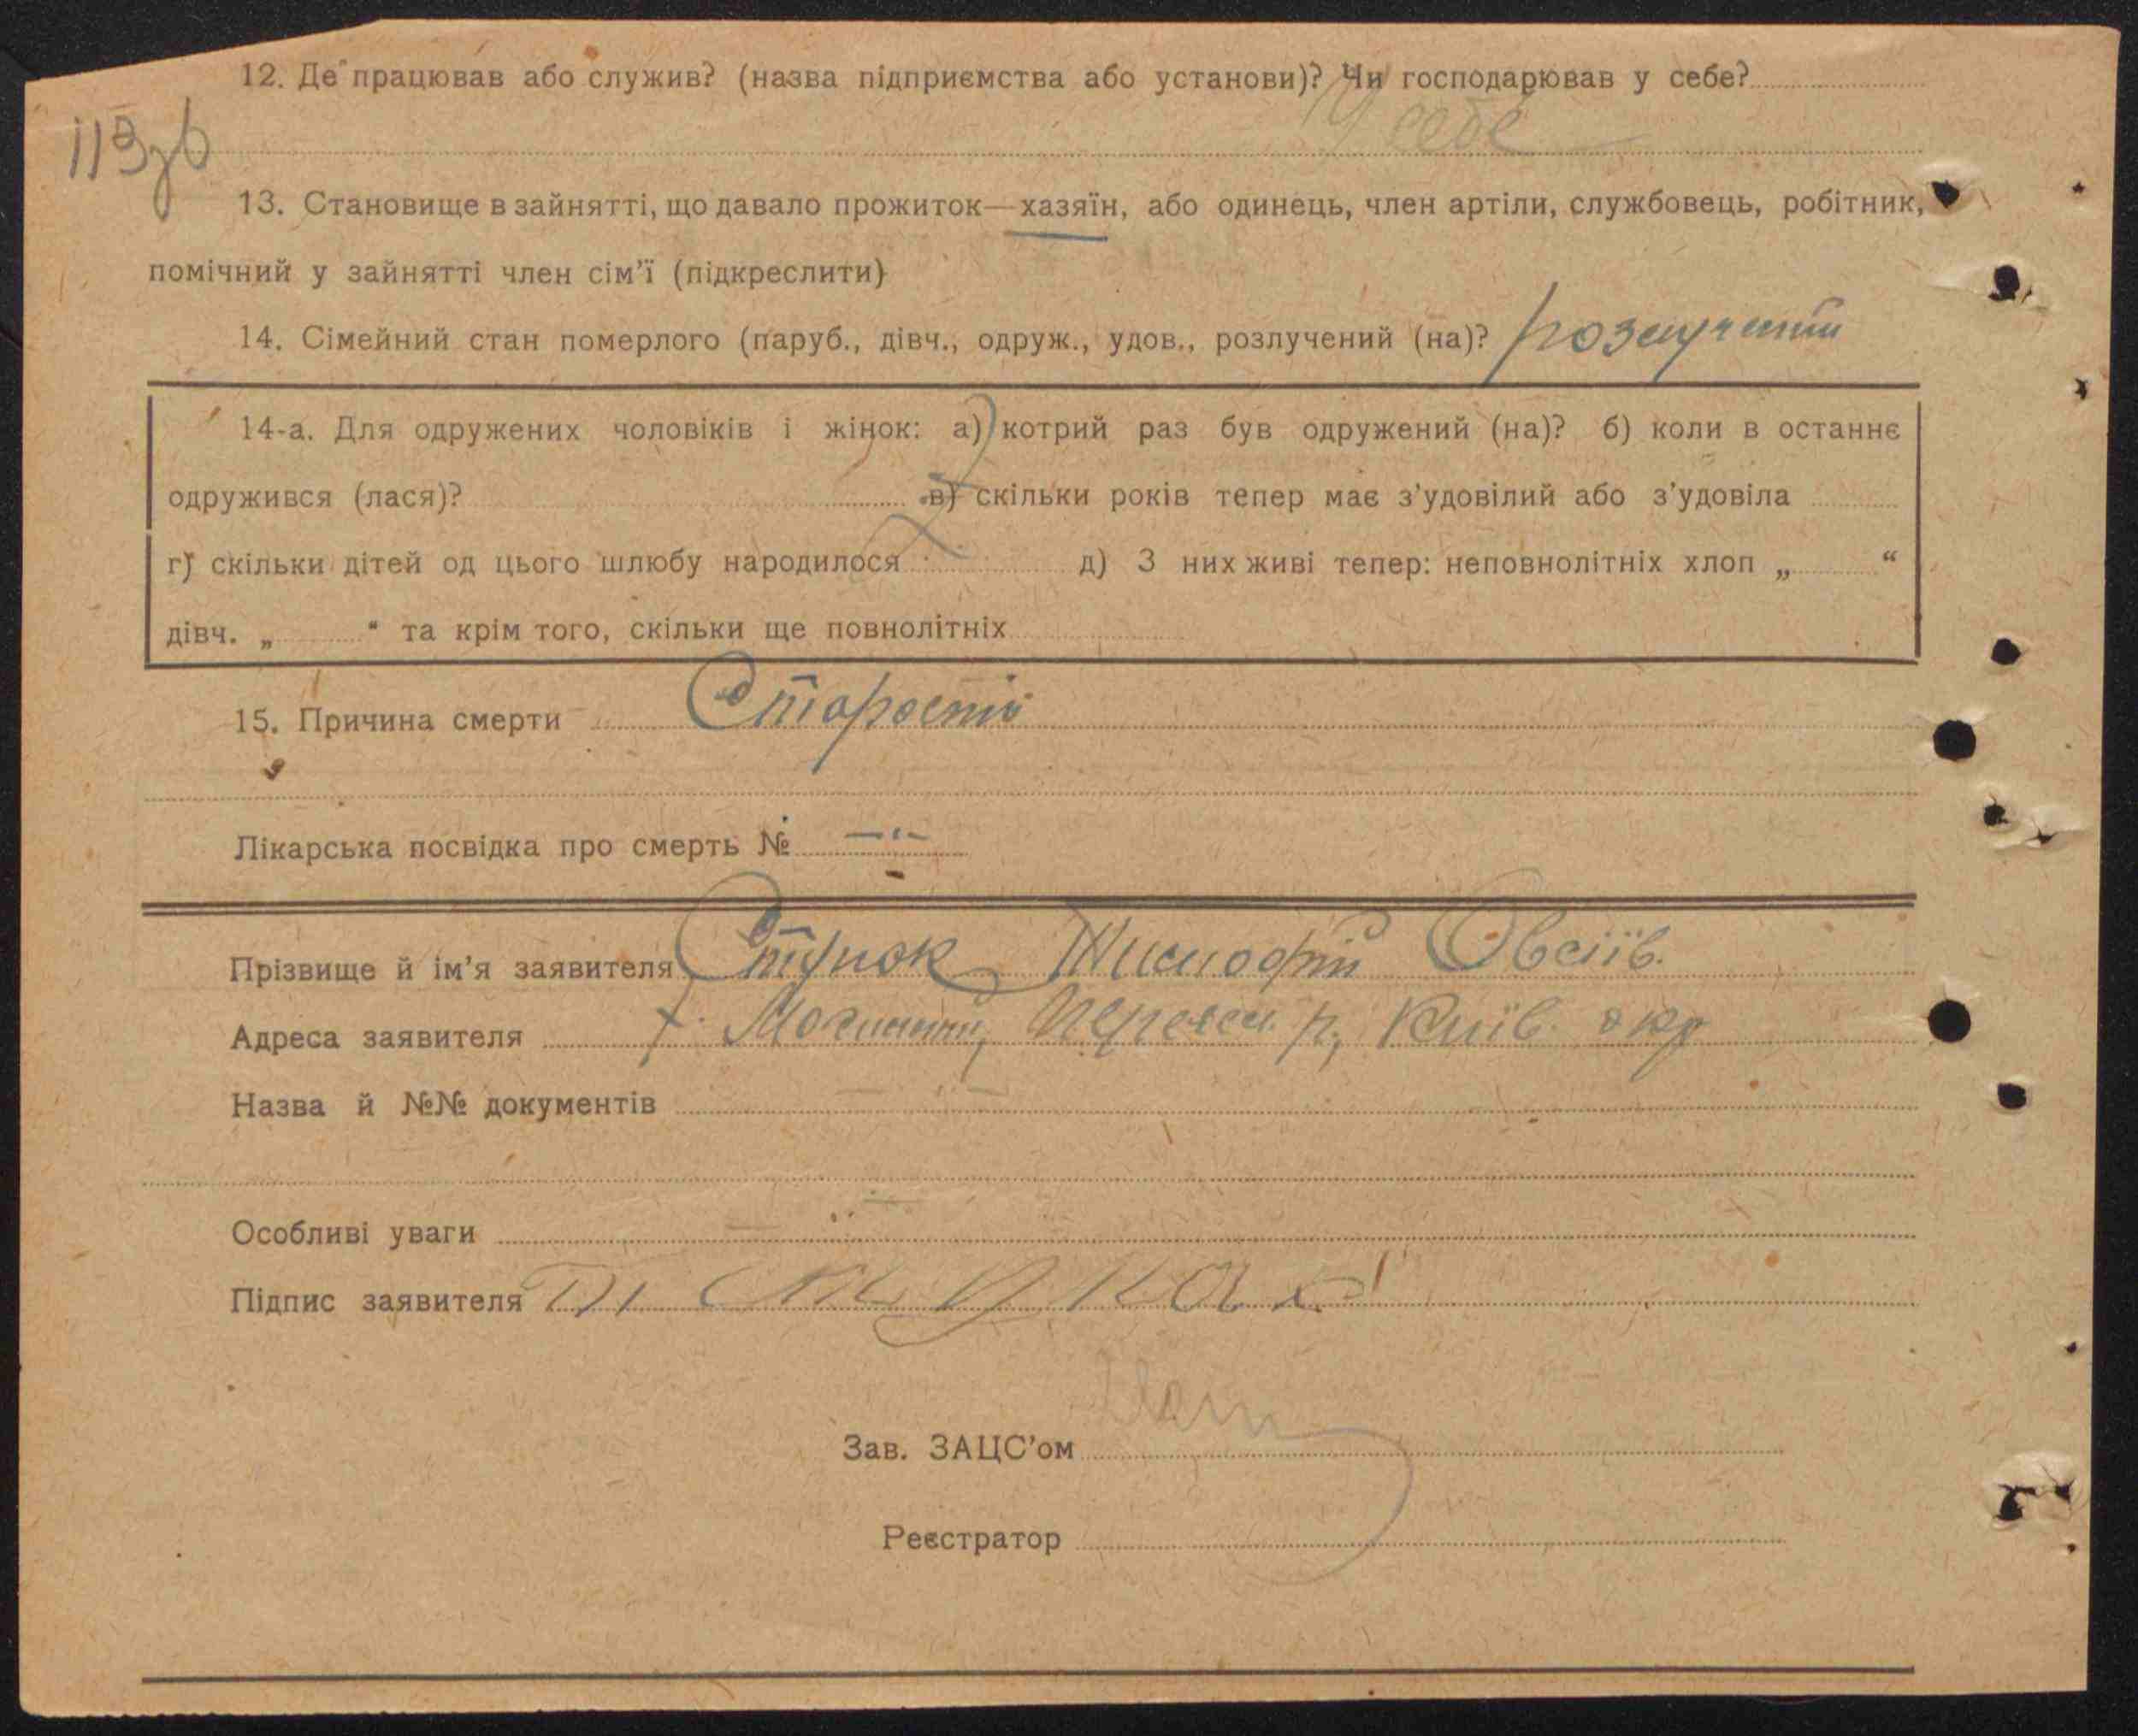 12. Де працював або служив? (назва підприємства або установи)? Чи господарював у себе?
У себе
113зв
13. Становище в зайнятті, що давало прожиток—хазяїн, або одинець, член артіли, службовець, робітник,
помічний у зайнятті член сім'ї (підкреслити)
14. Сімейний стан померлого (паруб., дівч., одруж., удов., розлучений (на)? розлучений
14-а. Для одружених чоловіків і жінок: а) котрий раз був одружений (на)? б) коли в останнє
одружився (лася)? в) скільки років тепер має з'удовілий або з'удовіла
г) скільки дітей од цього шлюбу народилося д) З них живі тепер: неповнолітніх хлоп „ “
дівч. „ “ та крім того, скільки ще повнолітніх
15. Причина смерти Старость
Лікарська посвідка про смерть № —"—
Прізвище й ім'я заявителя Ступак Овсіїв.
Адреса заявителя х. Переясл. р, Київ. окр
Назва й №№ документів — " —
Особливі уваги — " —
Підпис заявителя Ступак
Зав. ЗАЦС'ом
Реєстратор